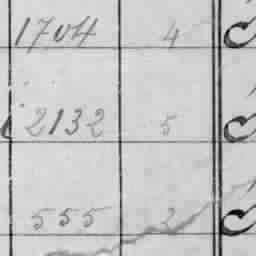 1704 4
2132 5
555 2